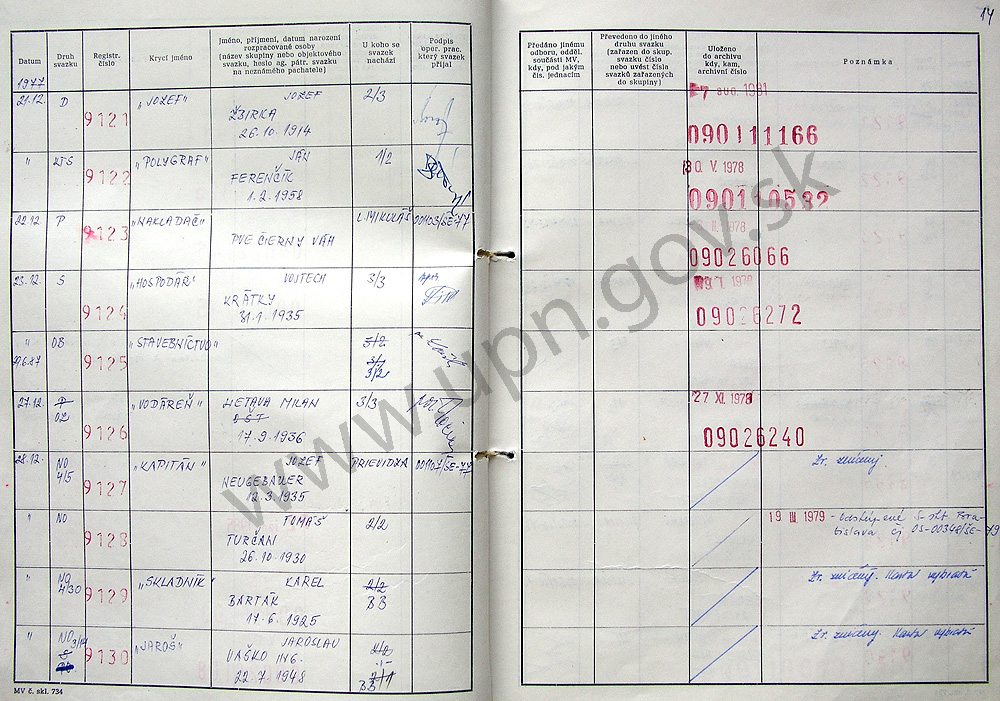 14
Datum
Druh svazku
Registr. číslo
Krycí jméno
Jméno, příjmení, datum narození
rozpracované osoby
(název skupiny nebo objektového
svazku, heslo ag. pátr. svazku
na neznámého pachatele)
U koho se
svazek
nachází
Podpis
oper. prac.
který svazek
přijal
Předáno jinému
odboru, odděl.
součásti MV,
kdy, pod jakým
čís. jednacím
Převedeno do jiného
druhu svazku
(zařazen do skup.
svazku číslo
nebo uvést čísla
svazků zařazených
do skupiny)
Uloženo
do archivu
kdy, kam,
archivní číslo
Poznámka
1977
21.12. D 9121 „JOZEF" JOZEF 2/3
ŽBIRKA
26.10.1914
1981
09011166
" 9122 „POLYGRAF" JÁN 1/2
FERENČÍK
1.2.1958
30. V. 1978
22.12. P 9123 „NAKLADAČ" L. MIKULÁŠ 00103/ŠE-77
PVE ČIERNY VÁH
1978
09026066
23.12. S 9124 „HOSPODÁR" VOJTECH 3/3
KRÁTKY
31.1.1935
09026272
" OB 9125 „STAVEBNÍCTVO" 3/2
3/1
3/2
27.12. D 9126 „VODÁREŇ" LIETAVA MILAN 3/3
17.9.1936
27 XI. 1978
09026240
28.12. NO 4/5 9127 „KAPITÁN" JOZEF PRIEVIDZA 00107/ŠE-77
NEUGEBAUER
12.3.1935
Zv. zničený
" NO 9128 TOMÁŠ 2/2
TURČAN
26.10.1930
19 III 1979
" NO 4/30 9129 „SKLADNÍK" KAREL 2/2
BARTÁK BB
17.6.1925
Zv. zničený.
" NO 3/14 9130 „JAROŠ" JAROSLAV
VAŠKO ING.
22.7.1948 BB
Zv. zničený.
MV č. skl. 734
www.upn.gov.sk